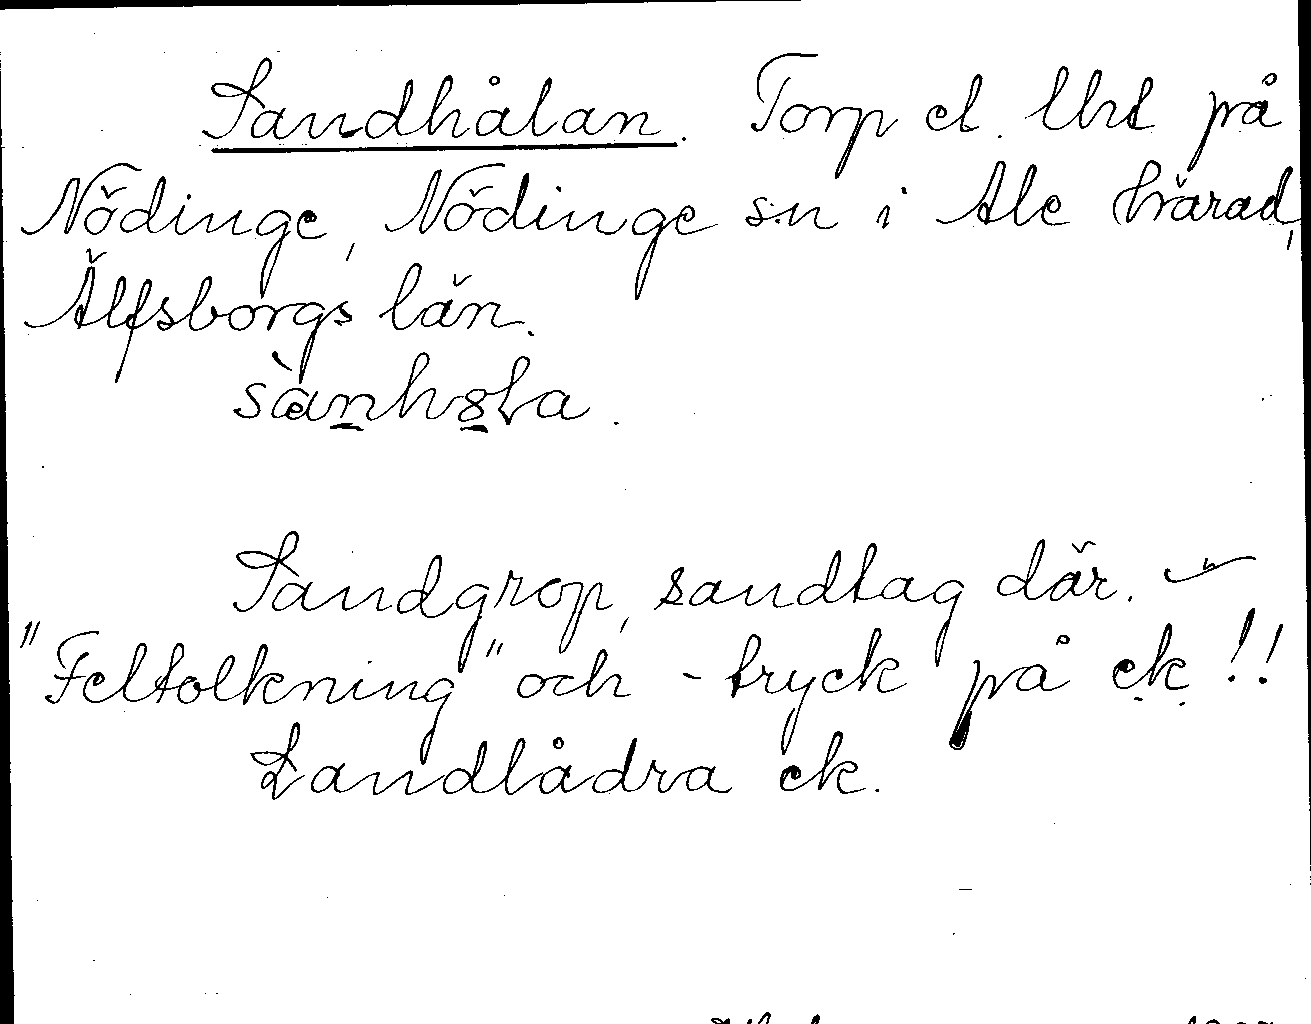 Sandhålan. Torp el. lht på
Nödinge, Nödinge sn i Ale härad,
Älfsborgs län.
Sandgrop, sandtag där.
"Feltolkning" och -tryck på ek!!
Sandlådra ek.